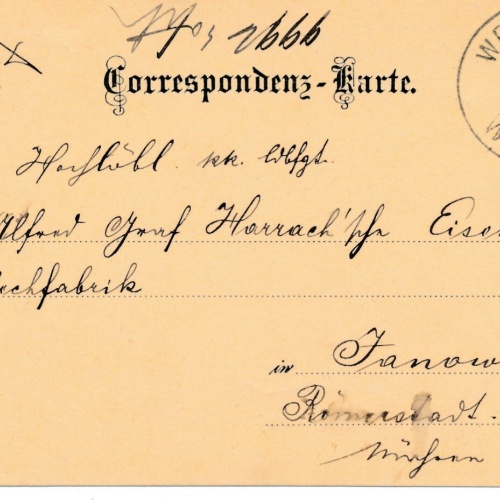 2666
Correspondenz-Karte.
WE
Hochlöbl. kk. ldbfgt.
Alfred Graf Harrach'sche Eise
echfabrik
in Janow
Römerstadt.
Mähren